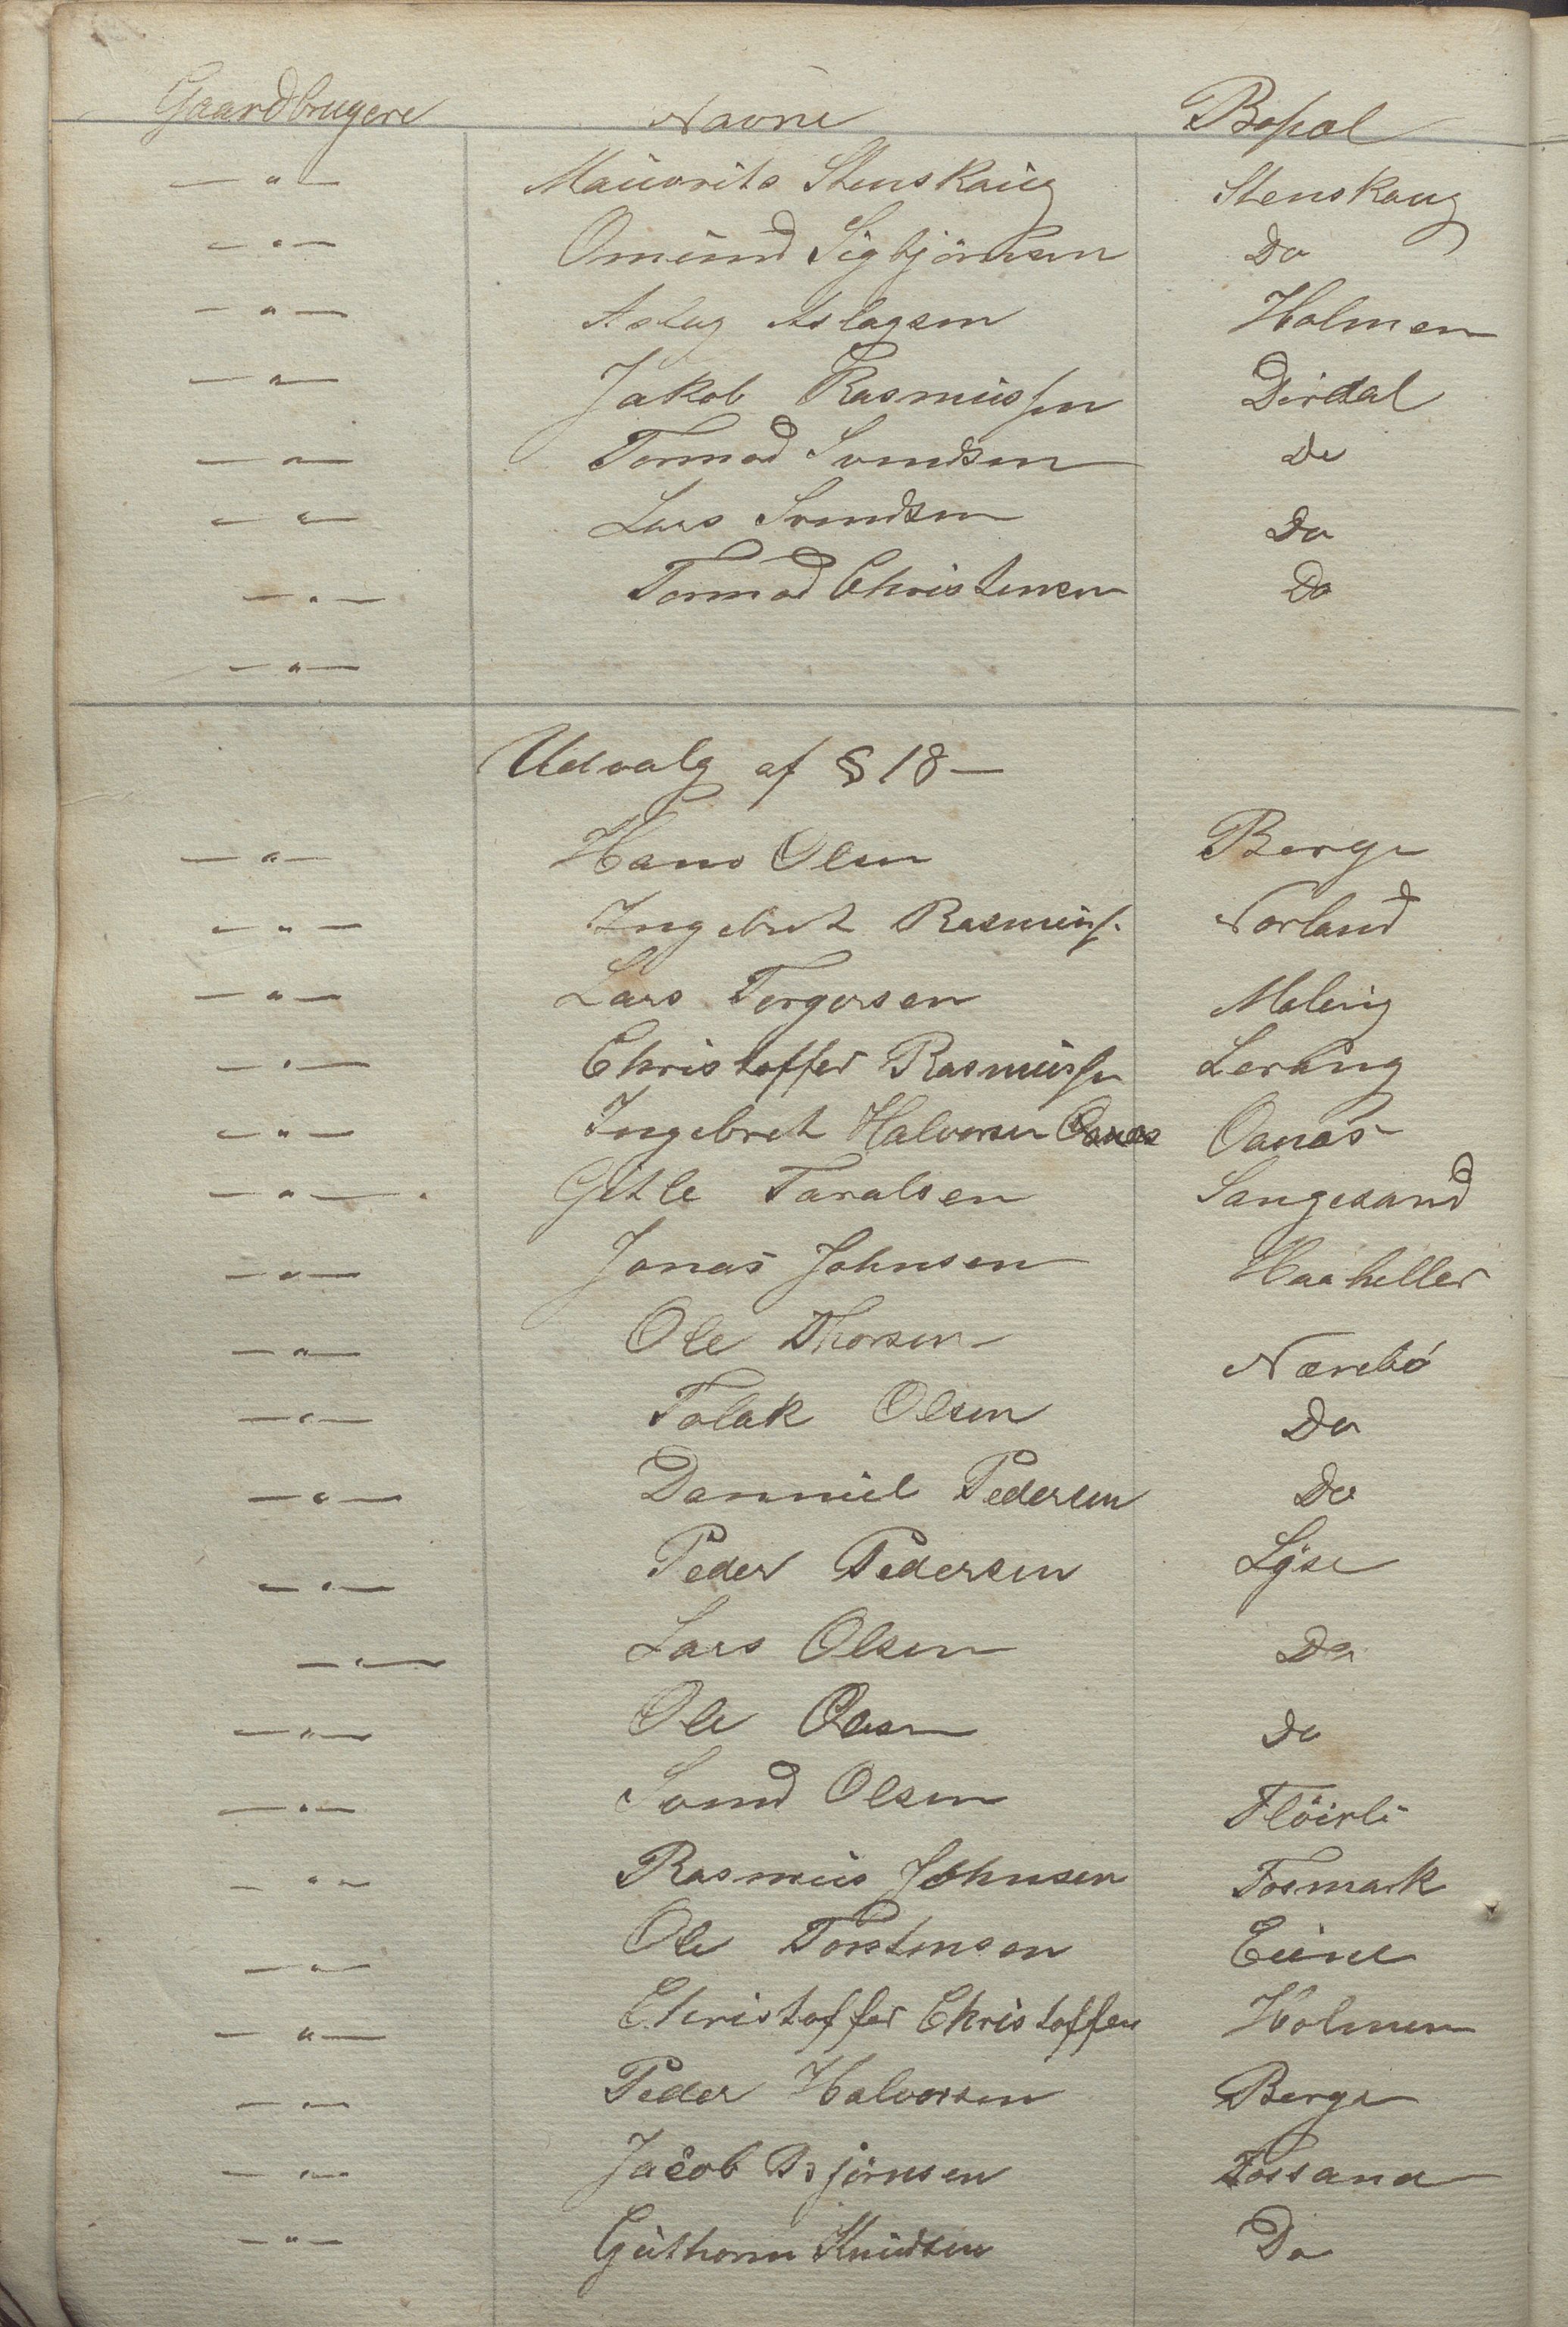 Gaardbrugere Navne Bopæl
— " — Mauorits Stenskaug Stenskaug
— " — Omund Sigbjörnsen Do
— " — Aslag Aslagsen Holmen
— " — Jakob Rasmussen Dirdal
— " — Tormod Svendsen Do
— " — Lars Svendsen Do
— " — Tormod Christensen Do
— " —
Udvalg af § 18 —
— " — Hans Olsen Berge
— " — Ingebret Rasmuss. Norland
— " — Lars Torgersen Meling
— " — Christoffer Rasmussen Lerang
— " — Ingebret Halvorsen Oanes Oanes
— " — Gitle Taralsen Sangesand
— " — Jonas Johnsen Haaheller
— " — Ole Thorsen Nærebö
— " — Tolak Olsen Do
— " — Danniel Pedersen Do
— " — Peder Pedersen Lyse
— " — Lars Olsen Do
— " — Ole Olsen Do
— " — Svend Olsen Flöirli
— " — Rasmus Johnsen Fosmark
— " — Ole Torstensen Eiene
— " — Christoffer Christoffen Holmen
— " — Peder Halvorsen Berge
— " — Jacob Björnsen Fossana
— " — Guthorm Knudsen Do